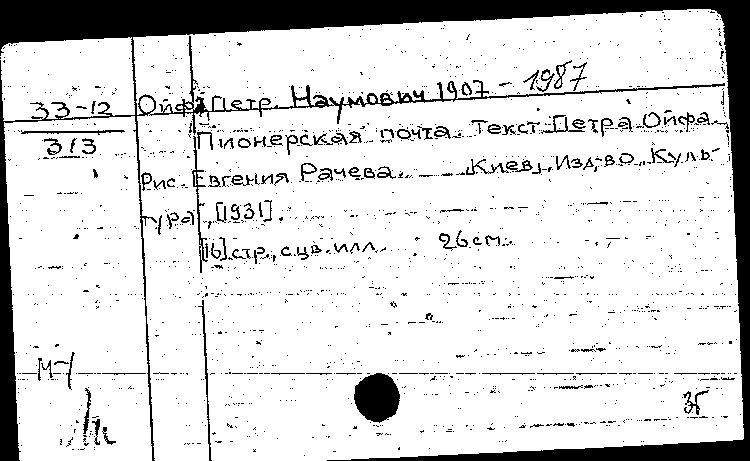 33-12
313
Ойфа, Петр Наумович 1907 - 1987
Пионерская почта. Текст Петра Ойфа.
Рис. Евгения Рачева. Киев, Изд-во „Куль-
тура“, [1931].
[16] стр., с цв. илл. 26 см.
М-1